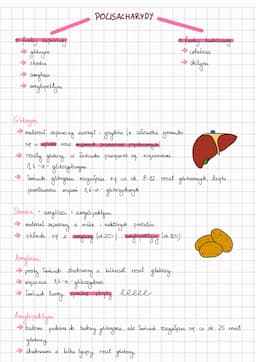 POLISACHARYDY
→ glikogen
→ skrobia
→ amyloza
→ amylopektyna
→ celuloza
→ chityna
Glikogen
→ materiał zapasowy zwierząt i grzybów (u człowieka gromadzi
się w wątrobie oraz
→ reszty glukozy w łańcuchu powiązane są wiązaniami
1,4-α-glikozydowymi
→ łańcuch glikogenu rozgałęzia się co ok. 8-12 reszt glukozowych, dzięki
powstawaniu wiązań 1,6-α-glikozydowych
Skrobia = amyloza + amylopektyna
→ materiał zapasowy u roślin i niektórych protistów
→ składa się z amylozy (ok. 20%) i amylopektyny (ok. 80%)
Amyloza
→ prosty łańcuch zbudowany z kilkuset reszt glukozy
→ wiązania 1,4-α-glikozydowe
→ łańcuch tworzy
Amylopektyna
→ budowa podobna do budowy glikogenu, ale łańcuch rozgałęzia się co ok. 25 reszt
glukozy
→ zbudowana z kilku tysięcy reszt glukozy